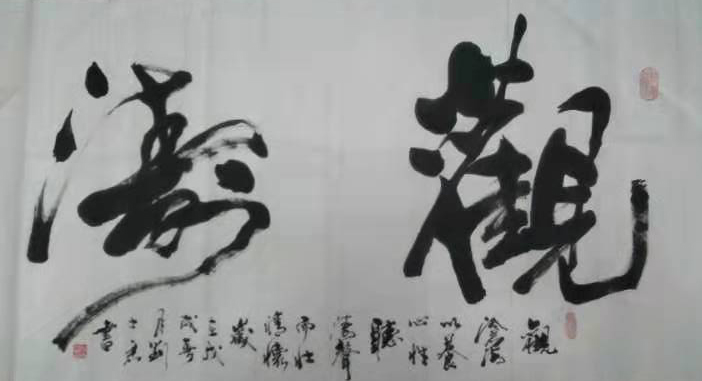 觀濤
觀
滄海
以養
心性
聽
濤聲
而壯
情懷
歲
在戊
戌年
月劉
書